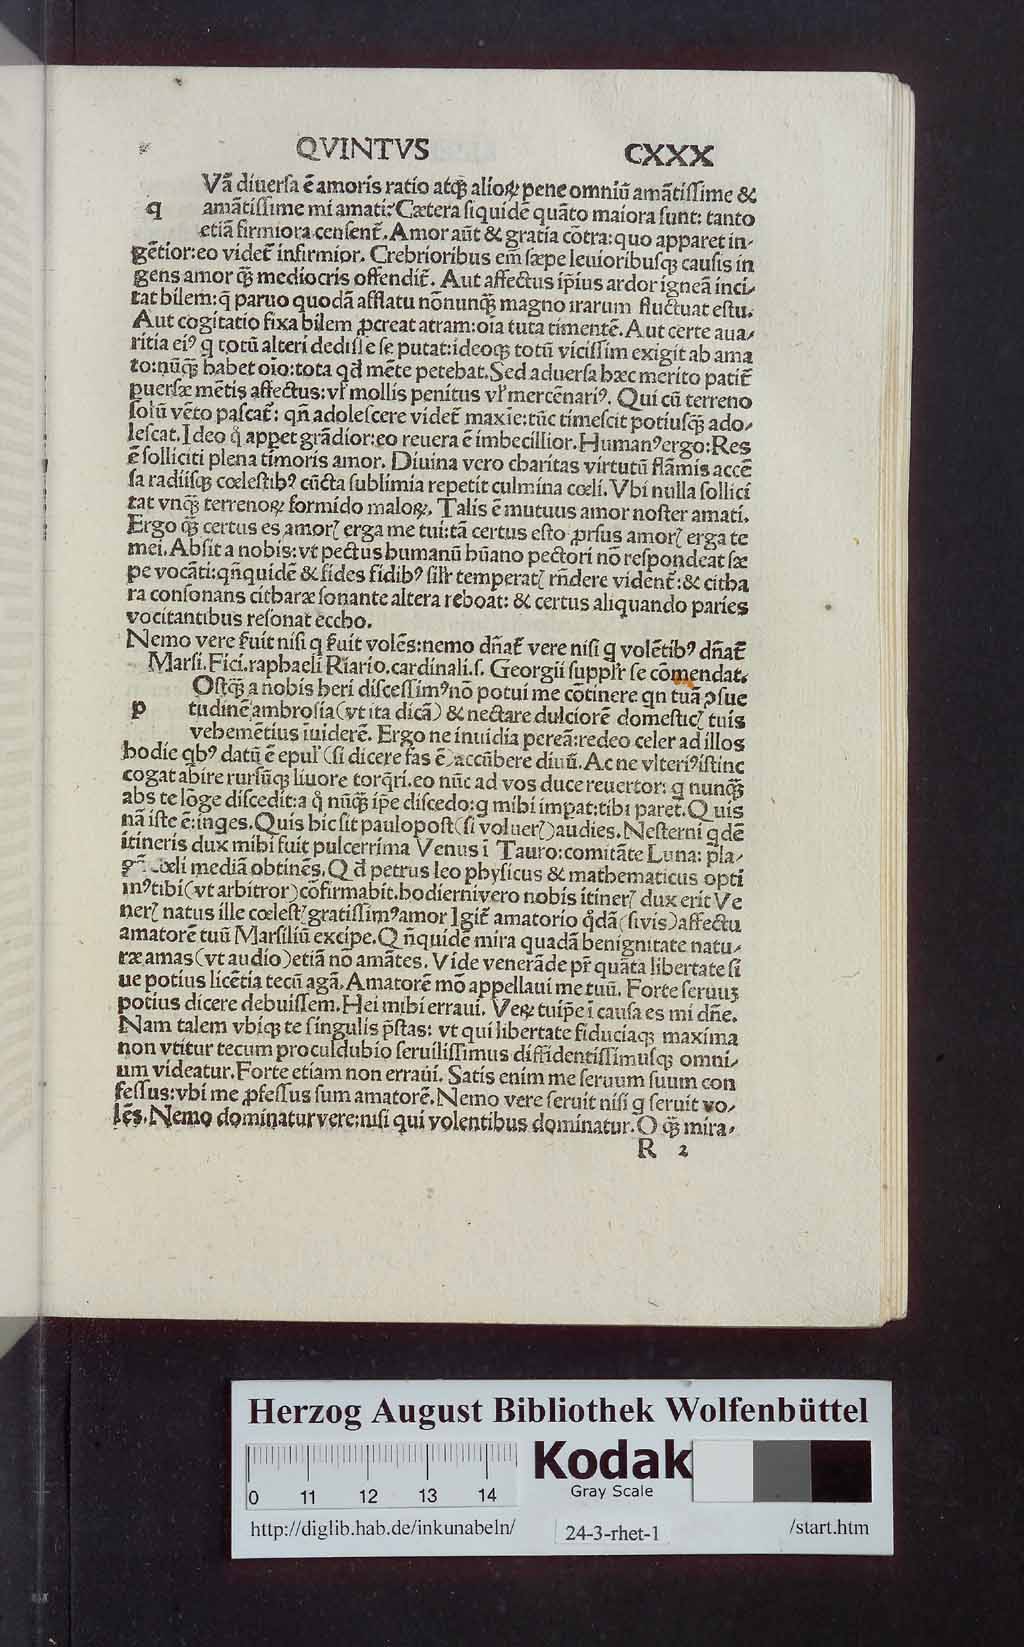 QVINTVS CXXX
Vā diuersa ē amoris ratio atq̄ꝫ alioꝝ pene omniū amātissime &
q amātissime mi amati? Cætera siquidē quāto maiora sunt: tanto
etiā firmiora censent̄. Amor aūt & gratia cōtra: quo apparet in-
gētior: eo videt̄ infirmior. Crebrioribus em̄ sæpe leuioribusqꝫ causis in
gens amor q̄ꝫ mediocris offendit̄. Aut affectus ip̄ius ardor igneā inci-
tat bilem: q̄ paruo quodā afflatu nōnunq̄ꝫ magno irarum fluctuat estu.
Aut cogitatio fixa bilem ꝓcreat atram: oīa tuta timentē. Aut certe aua-
ritia eiꝰ q totū alteri dedisse se putat: ideoqꝫ totū vicissim exigit ab ama
to: nūq̄ꝫ habet oīo: tota qd̄ mēte petebat. Sed aduersa hæc merito patit̄
ꝑuersæ mētis affectus: vl̄ mollis penitus vl̄ mercēnariꝰ. Qui cū terreno
solū vēto pascat̄: qn̄ adolescere videt̄ maxīe: tūc timescit potiusq̄ꝫ ado-
lescat. Ideo q̊ appet grādior: eo reuera ē imbecillior. Humanꝰ ergo: Res
ē solliciti plena timoris amor. Diuina vero charitas virtutū flāmis accē
sa radiisqꝫ cœlestibꝰ cūcta sublimia repetit culmina cœli. Vbi nulla sollici
tat vnq̄ꝫ terrenoꝝ formido maloꝝ. Talis ē mutuus amor noster amati.
Ergo q̄ꝫ certus es amorꝭ erga me tui: tā certus esto ꝓrsus amorꝭ erga te
mei. Absit a nobis: vt pectus humanū hūano pectori nō respondeat sæ
pe vocāti: qn̄quidē & fides fidibꝰ sil̄r temperatꝭ rn̄dere vident̄: & citha
ra consonans citharæ sonante altera reboat: & certus aliquando paries
vocitantibus resonat eccho.
Nemo vere fuit nisi q fuit volēs: nemo dn̄at̄ vere nisi q volētibꝰ dn̄at̄
Marsi. Fici. raphaeli Riario. cardinali. s. Georgii supplr̄ se cōmendat.
Ostq̄ꝫ a nobis heri discessimꝰ nō potui me cōtinere qn tuā ꝯsue
p tudinē ambrosia (vt ita dicā) & nectare dulciorē domesticꝭ tuis
vehemētius īuiderē. Ergo ne inuidia pereā: redeo celer ad illos
hodie qbꝰ datū ē epul̄ (si dicere fas ē) accūbere diuū. Ac ne vlteriꝰ istinc
cogat abire rursūqꝫ liuore torq̄ri. eo nūc ad vos duce reuertor: q nunq̄ꝫ
abs te lōge discedit: a q̊ nūq̄ꝫ ip̄e discedo: q mihi imꝑat: tibi paret. Quis
nā iste ē: inq̄es. Quis hic sit paulopost (si volueꝭ) audies. Hesterni qdē
itineris dux mihi fuit pulcerrima Venus ī Tauro: comitāte Luna: pla-
gā cœli mediā obtinēs. Qd̄ petrus leo physicus & mathematicus opti
mꝰ tibi (vt arbitror) cōfirmabit. hodierni vero nobis itinerꝭ dux erit Ve
nerꝭ natus ille cœlestꝭ gratissimꝰ amor Igit̄ amatorio q̊dā (si vis) affectu
amatorē tuū Marsiliū excipe. Qn̄quidē mira quadā benignitate natu-
ræ amas (vt audio) etiā nō amātes. Vide venerāde pr̄ quāta libertate si
ue potius licētia tecū agā. Amatorē mō appellaui me tuū. Forte seruuꝫ
potius dicere debuissem. Hei mihi erraui. Veꝝ tuip̄e ī causa es mi dn̄e.
Nam talem vbiqꝫ te singulis p̄stas: vt qui libertate fiduciaqꝫ maxima
non vtitur tecum proculdubio seruilissimus diffidentissimusqꝫ omni-
um videatur. Forte etiam non erraui. Satis enim me seruum suum con
fessus: vbi me ꝓfessus sum amatorē. Nemo vere seruit nisi q seruit vo-
lēs. Nemo dominatur vere: nisi qui volentibus dominatur. O q̄ꝫ mira-
R 2
Herzog August Bibliothek Wolfenbüttel
Kodak
Gray Scale
0 11 12 13 14
http://diglib.hab.de/inkunabeln/ 24-3-rhet-1 /start.htm